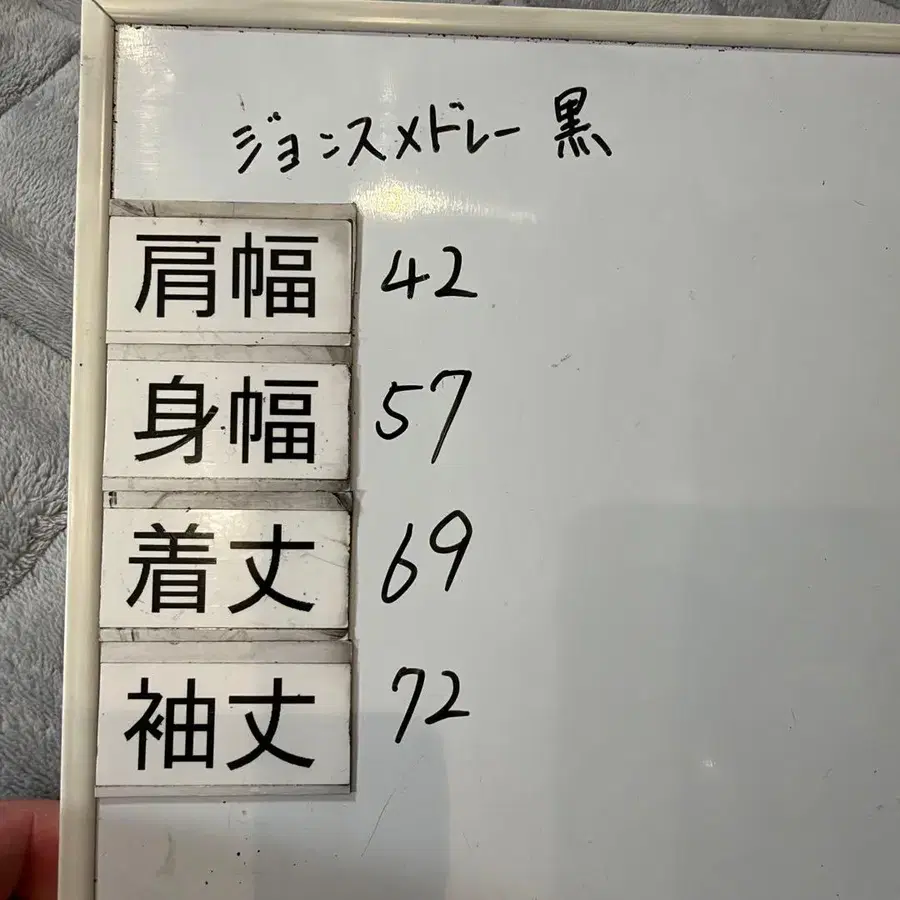 ジョンスメドレー 黒
肩幅 42
身幅 57
着丈 69
袖丈 72